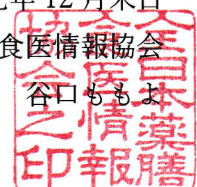 年12月末日
食医情報協会
谷口ももよ
全日本薬膳
食医情報
協会之印